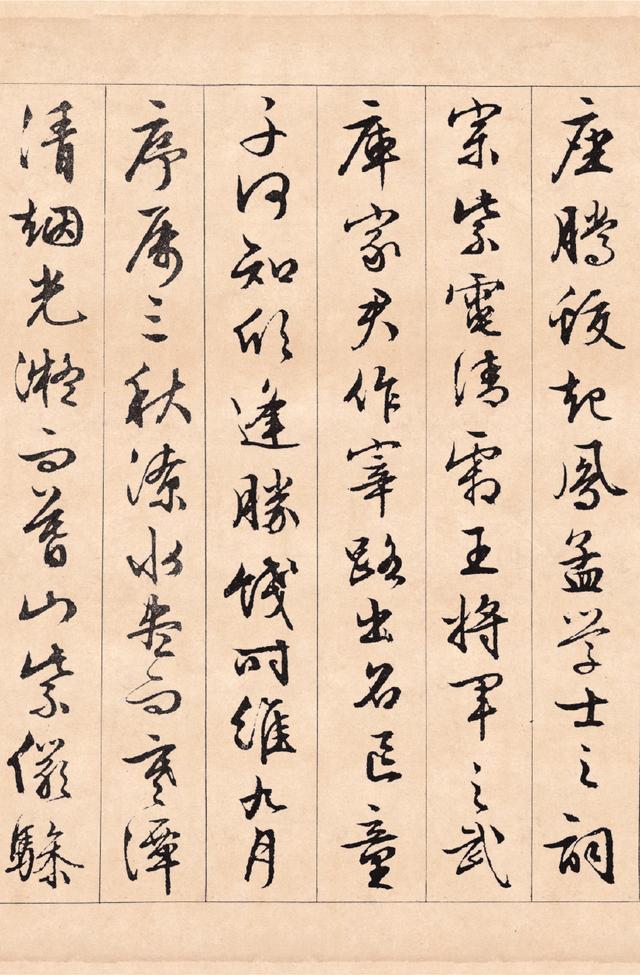 座騰蛟起鳳孟学士之詞
宗紫電清霜王将軍之武
庫家君作宰路出名區童
子何知躬逢勝餞时維九月
序属三秋潦水尽而寒潭
清烟光凝而暮山紫儼驂